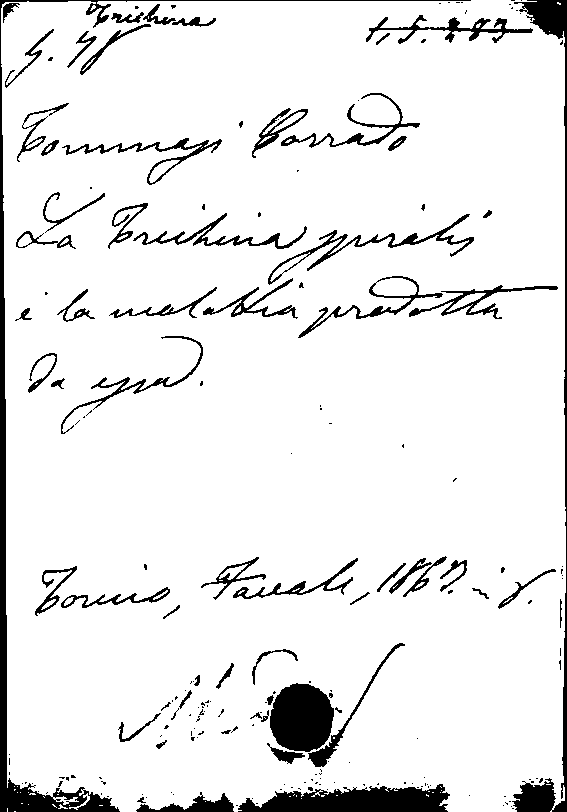 Trichina
1, 5. 283
Tommasi Corrado
La Trichina spiralis
e la malattia prodotta
da essa.
Torino, Favale, 1863. in 8.